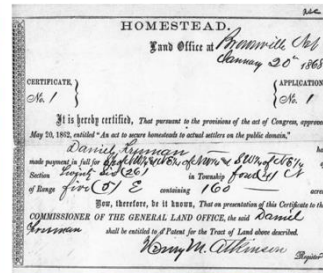 HOMESTEAD.
Land Office at Brownville Neb
January 20th 1868
CERTIFICATE, No. 1 } { APPLICATION No. 1
It is hereby certified, That pursuant to the provisions of the act of Congress, approved
May 20, 1862, entitled "An act to secure homesteads to actual settlers on the public domain,"
Daniel Freeman ha
made payment in full for of
Section Twenty Six (26) in Township four (4) N
of Range five (5) E containing 160 acres
Now, therefore, be it known, That on presentation of this Certificate to the
COMMISSIONER OF THE GENERAL LAND OFFICE, the said Daniel
Freeman shall be entitled to a Patent for the Tract of Land above described.
Henry M. Atkinson
Register